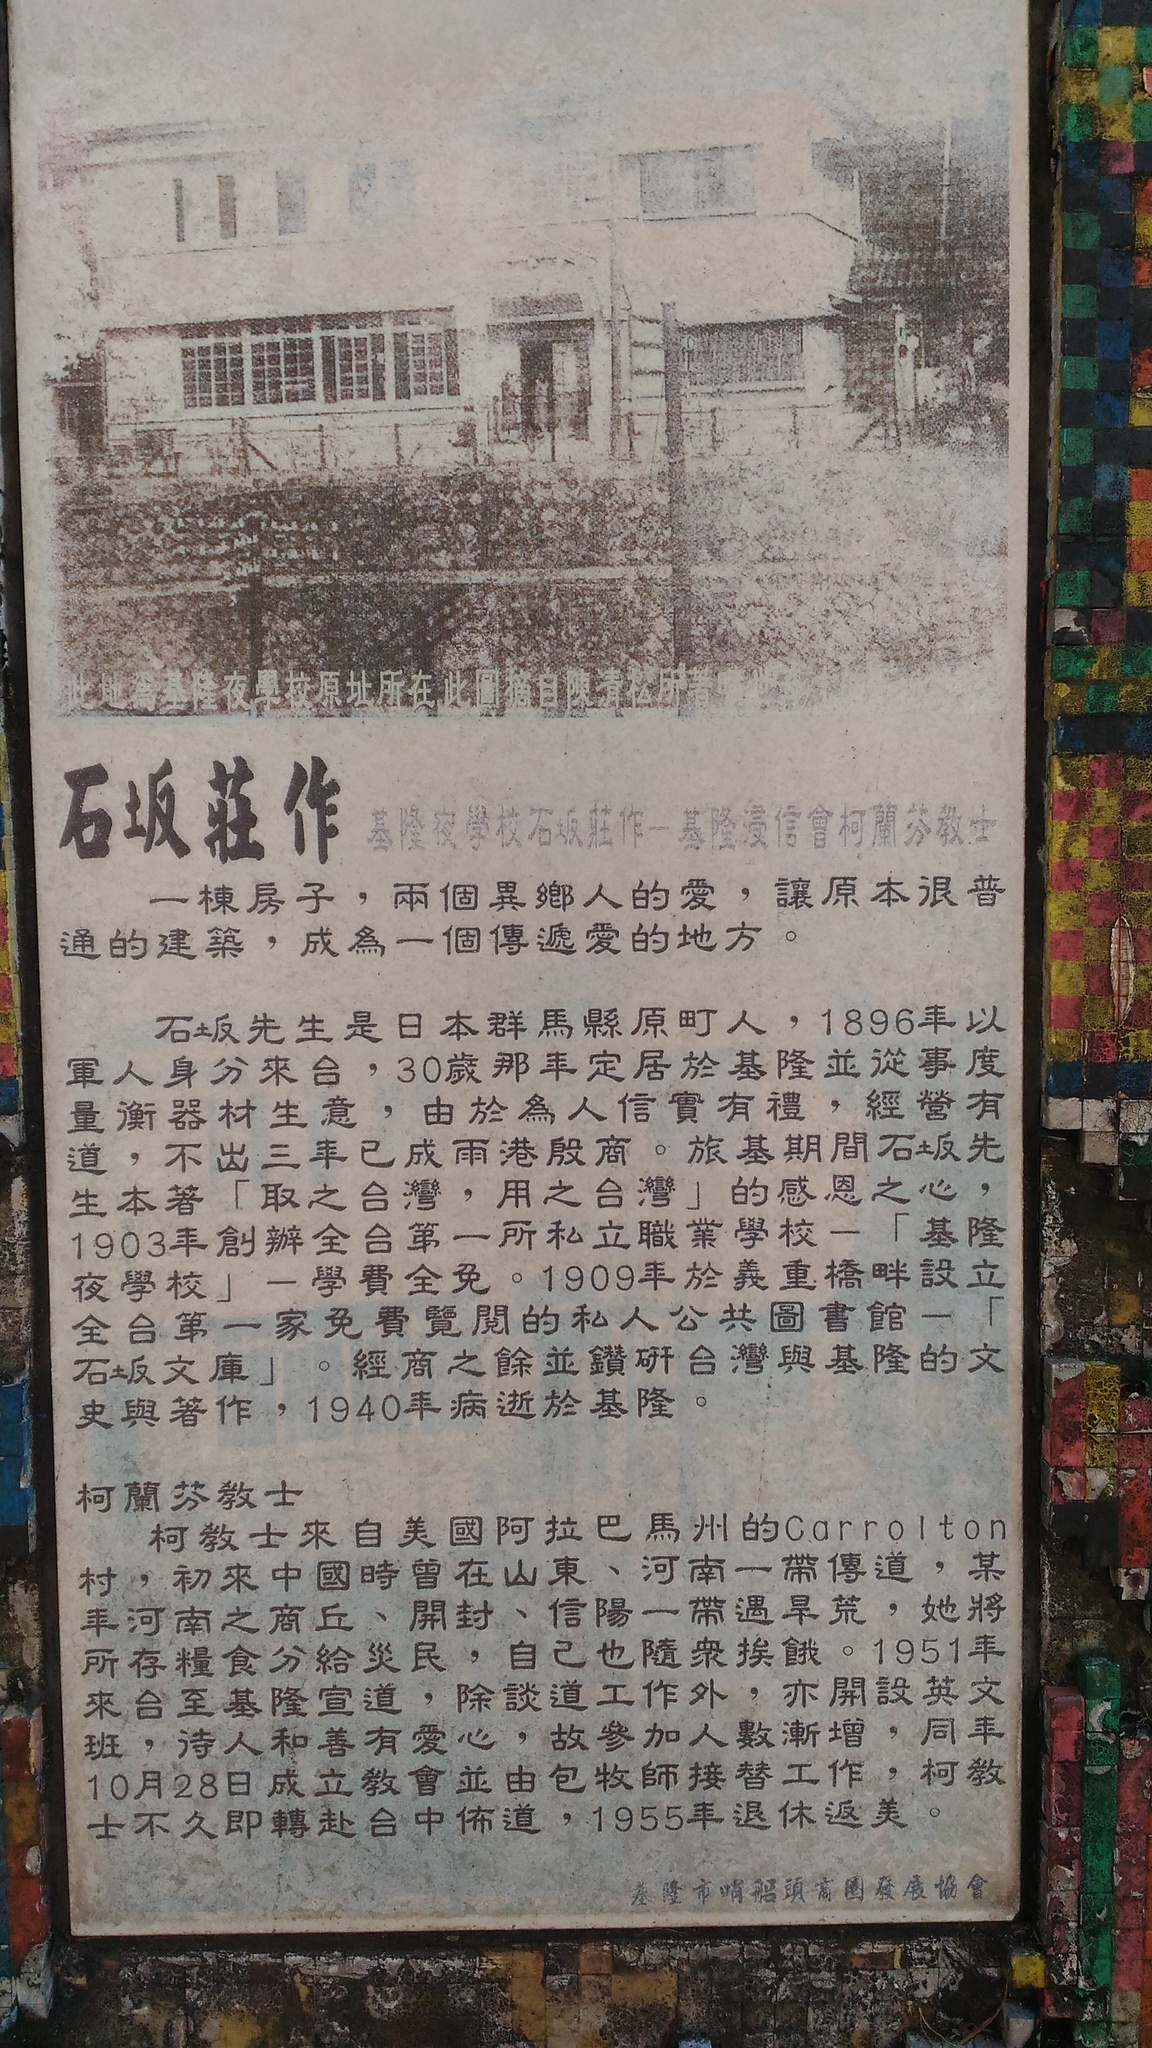 此地為基隆夜學校原址所在此圖摘自陳清松所著
石坂莊作 基隆夜學校石坂莊作－基隆浸信會柯蘭芬教士
一棟房子，兩個異鄉人的愛，讓原本很普
通的建築，成為一個傳遞愛的地方。
石坂先生是日本群馬縣原町人，1896年以
軍人身分來台，30歲那年定居於基隆並從事度
量衡器材生意，由於為人信實有禮，經營有
道，不出三年已成雨港殷商。旅基期間石坂先
生本著「取之台灣，用之台灣」的感恩之心，
1903年創辦全台第一所私立職業學校－「基隆
夜學校」－學費全免。1909年於義重橋畔設立
全台第一家免費覽閱的私人公共圖書館－「
石坂文庫」。經商之餘並鑽研台灣與基隆的文
史與著作，1940年病逝於基隆。
柯蘭芬教士
柯教士來自美國阿拉巴馬州的Carrolton
村，初來中國時曾在山東、河南一帶傳道，某
年河南之商丘、開封、信陽一帶遇旱荒，她將
所存糧食分給災民，自己也隨衆挨餓。1951年
來台至基隆宣道，除談道工作外，亦開設英文
班，待人和善有愛心，故參加人數漸增，同年
10月28日成立教會並由包牧師接替工作，柯教
士不久即轉赴台中佈道，1955年退休返美。
基隆市哨船頭商圈發展協會